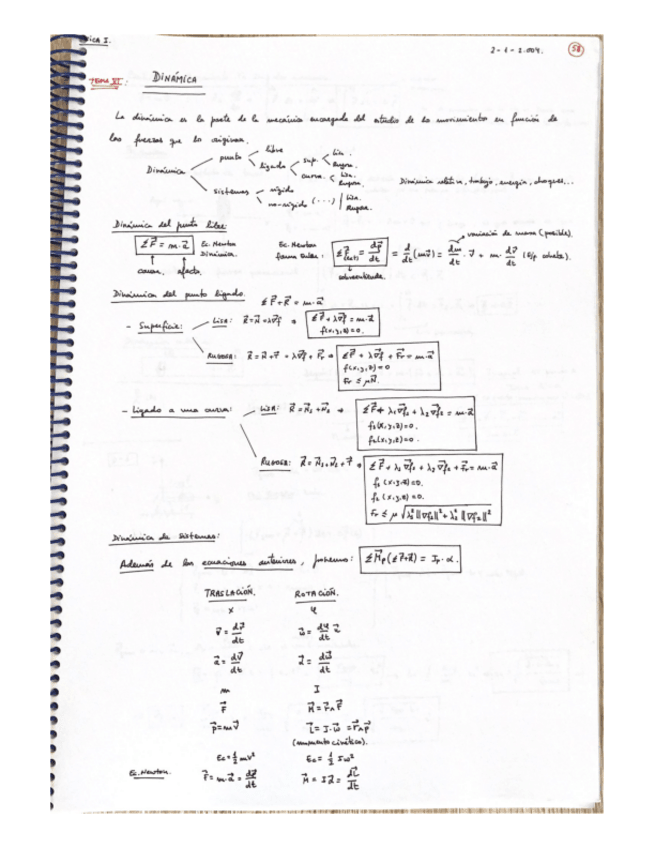 ica I.
2-1-2.004.
58
TEMA VI: DINÁMICA
La dinámica es la parte de la mecánica encargada del estudio de los movimientos en función de
las fuerzas que lo originan.
Dinámica
punto
libre
ligado
sup.
Lisa.
Rugosa.
curva.
Lisa.
Rugosa.
sistemas
rígido
no-rígido (...)
Lisa.
Rugosa.
Dinámica relativa, trabajo, energía, choques,...
Dinámica del punto libre:
ΣF⃗ = m·a⃗
Ec. Newton Dinámica.
causa. efecto.
Ec. Newton forma Euler:
ΣF⃗(ext) = dp⃗/dt = d/dt (mv⃗) = dm/dt · v⃗ + m · dv⃗/dt (Ejp cohete).
variación de masa (posible).
sobreentiende.
Dinámica del punto ligado.
ΣF⃗+R⃗ = m·a⃗
- Superficie:
LISA: R⃗=N⃗=λ∇⃗f → ΣF⃗ + λ∇⃗f = m·a⃗
f(x,y,z)=0.
RUGOSA: R⃗=N⃗+F⃗ = λ∇⃗f + F⃗r → ΣF⃗ + λ∇⃗f + F⃗r = m·a⃗
f(x,y,z)=0
Fr ≤ μN⃗.
- Ligado a una curva:
LISA: R⃗=N⃗1+N⃗2 → ΣF⃗+ λ1∇⃗f1 + λ2∇⃗f2 = m·a⃗
f1(x,y,z)=0.
f2(x,y,z)=0.
RUGOSA: R⃗=N⃗1+N⃗2+F⃗ → ΣF⃗ + λ1∇⃗f1 + λ2∇⃗f2 + F⃗r = m·a⃗
f1(x,y,z)=0.
f2(x,y,z)=0.
Fr ≤ μ √(λ1²‖∇⃗f1‖² + λ2²‖∇⃗f2‖²)
Dinámica de sistemas:
Además de las ecuaciones anteriores, ponemos: ΣM⃗p(ΣF⃗+R⃗) = Ip·α.
TRASLACIÓN. ROTACIÓN.
x φ
v⃗ = dr⃗/dt ω⃗ = dφ/dt u⃗
a⃗ = dv⃗/dt α⃗ = dω⃗/dt
m I
F⃗ M⃗=r⃗∧F⃗
p⃗=mv⃗ L⃗=I·ω⃗ =r⃗∧p⃗
(momento cinético).
Ec=½mv² Ec=½Iω²
Ec. Newton. F⃗=m·a⃗=dp⃗/dt M⃗=Iα⃗=dL⃗/dt